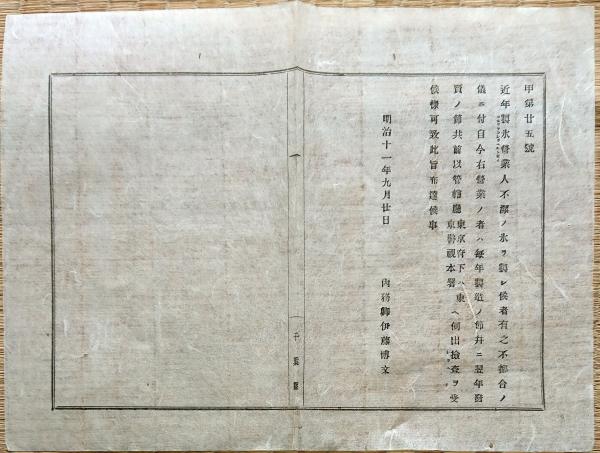 甲第廿五號
近年製氷營業人不潔ノ氷ヲ製シ候者有之不都合ノ
儀ニ付自今右營業ノ者ハ毎年製造ノ節幷ニ翌年發
賣ノ節共前以管轄廳東京府下ハ東京警視本署ヘ伺出撿査ヲ受
候樣可致此旨布達候事
明治十一年九月廿日
內務卿伊藤博文
千葉縣